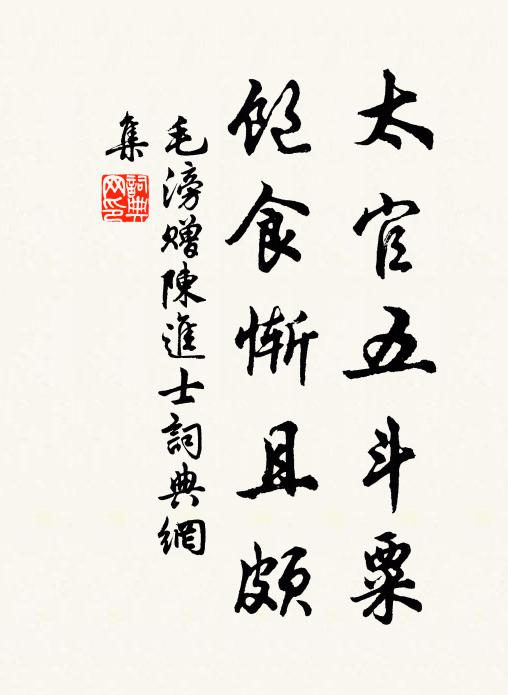 太官五斗粟
飽食慚且頗
毛滂贈陳進士詞典網
集
詞典
网印